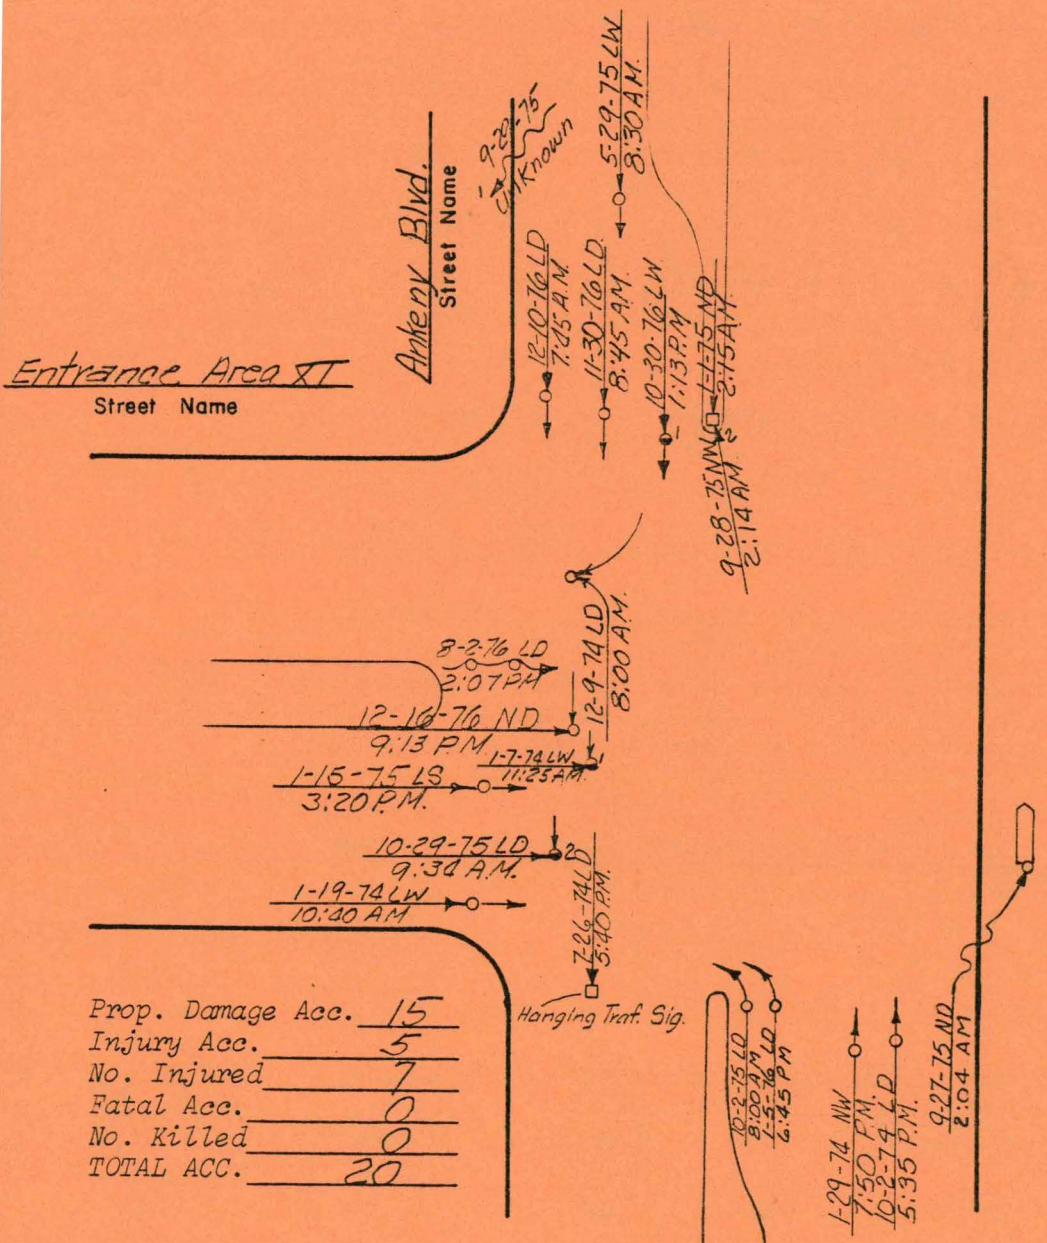 Ankeny Blvd.
Street Name
Entrance Area XI
Street Name
9-20-75
Unknown
5-29-75 LW
8:30 A.M.
12-10-76 LD
7:45 A.M.
11-30-76 LD
8:45 A.M.
10-30-76 LW
1:13 P.M
1
1-1-75 ND
2:15 A.M.
2
9-28-75 NW
2:14 A.M.
12-9-74 LD
8:00 A.M.
8-2-76 LD
2:07 PM
12-16-76 ND
9:13 P.M.
1-7-74 LW
11:25 A.M.
1
1-15-75 LS
3:20 P.M.
10-29-75 LD
9:34 A.M.
2
1-19-74 LW
10:40 AM
7-26-74 LD
5:40 P.M.
Hanging Traf. Sig.
10-2-75 LD
8:00 AM
1-5-76 LD
6:45 PM
1-29-74 NW
7:50 P.M.
10-2-74 LD
5:35 P.M.
9-27-75 ND
2:04 AM
Prop. Damage Acc. 15
Injury Acc. 5
No. Injured 7
Fatal Acc. 0
No. Killed 0
TOTAL ACC. 20